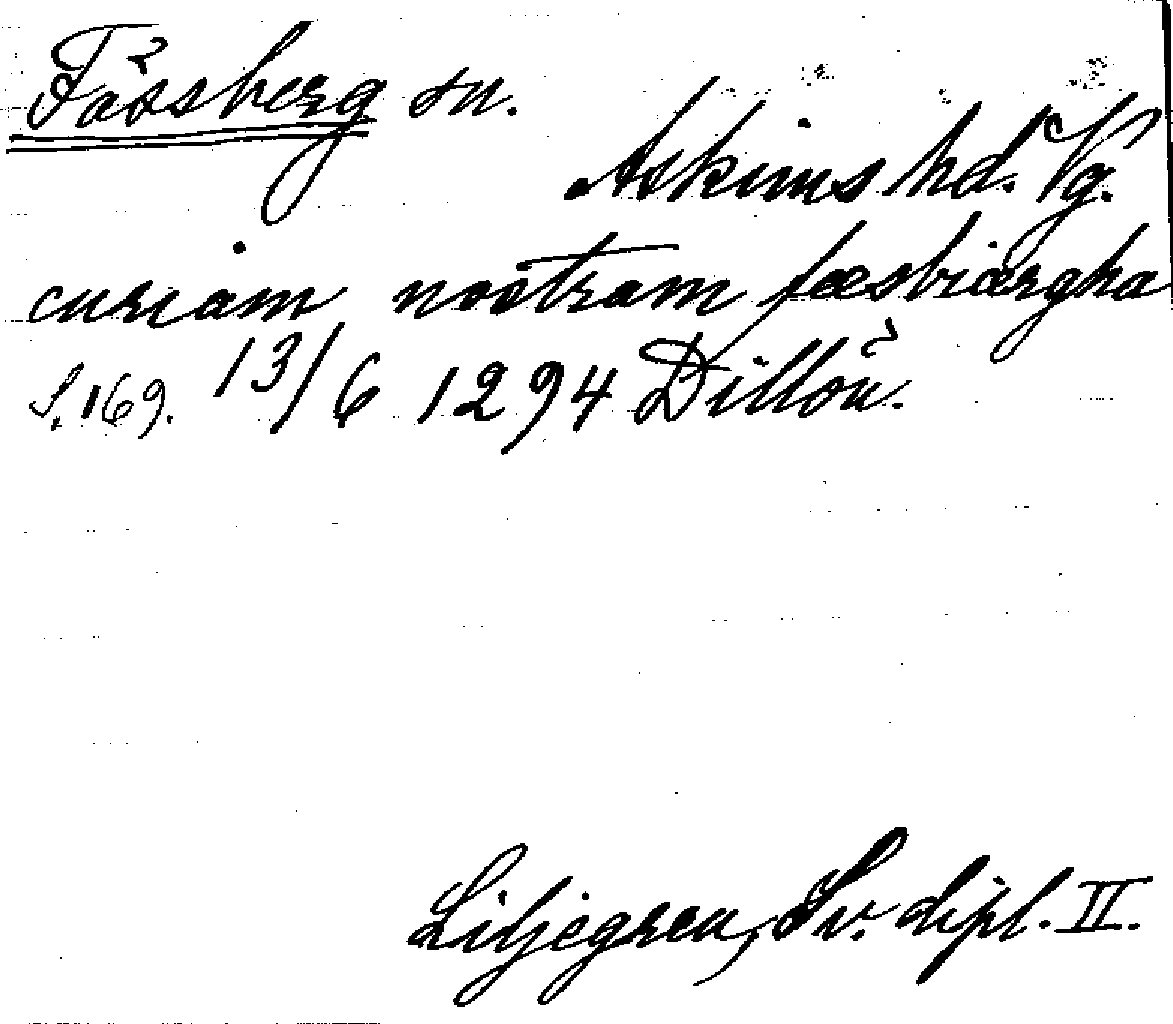 Fässberg sn.
Askims hd. Vg.
curiam nostram fæsbiærgha
S. 169. 13/6 1294 Dillöu.
Liljegren, Sv. dipl. II.